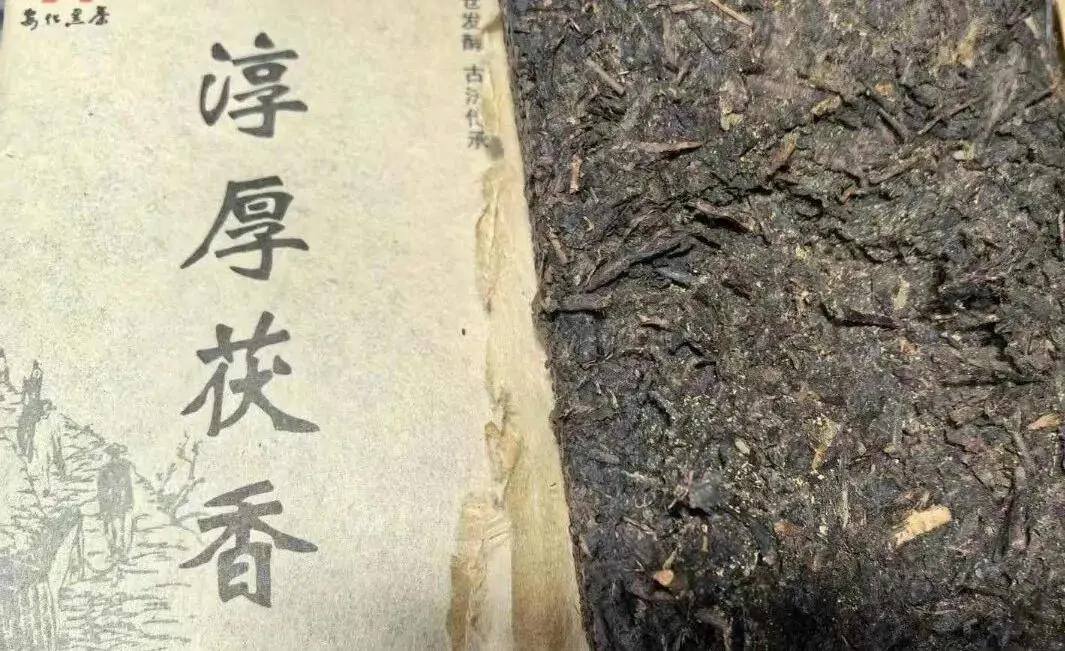 安化黑茶
淳厚茯香
发酵 古法传承